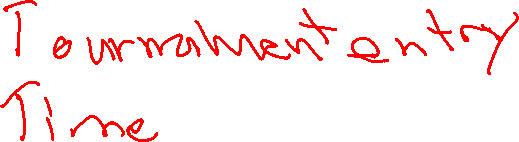 Tournament entry
Time